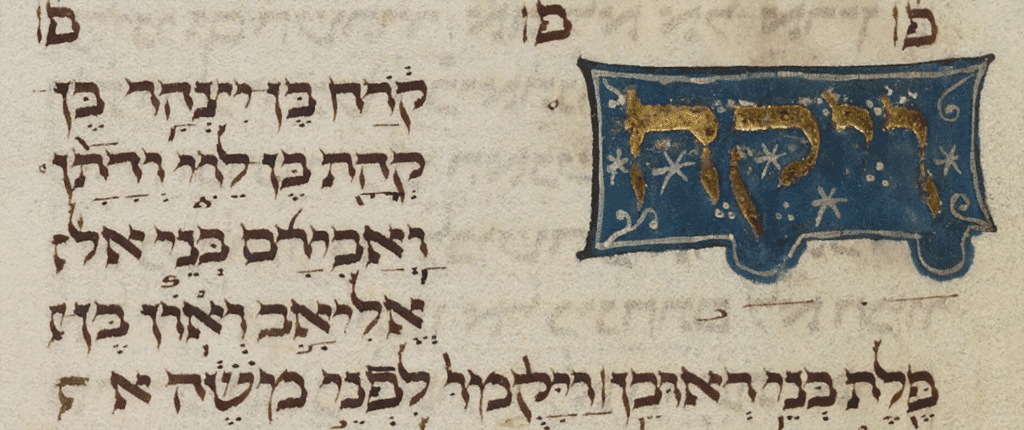 פ פ פ
ויקח
קֹרַח בֶּן יִצְהָר בֶּן
קְהָת בֶּן לֵוִי וְדָתָן
וַאֲבִירָם בְּנֵי אל
אֱלִיאָב וְאוֹן בֶּן
פֶּלֶת בְּנֵי רְאוּבֵן וַיָּקֻמוּ לִפְנֵי מֹשֶׁה א